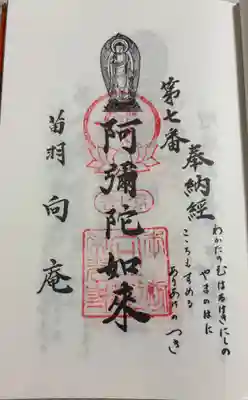 奉納經
第七番
わかたのむはるけきにしの
やまのはに
こころもすめる
ありあけの つき
阿彌陀如來
苗羽 向庵